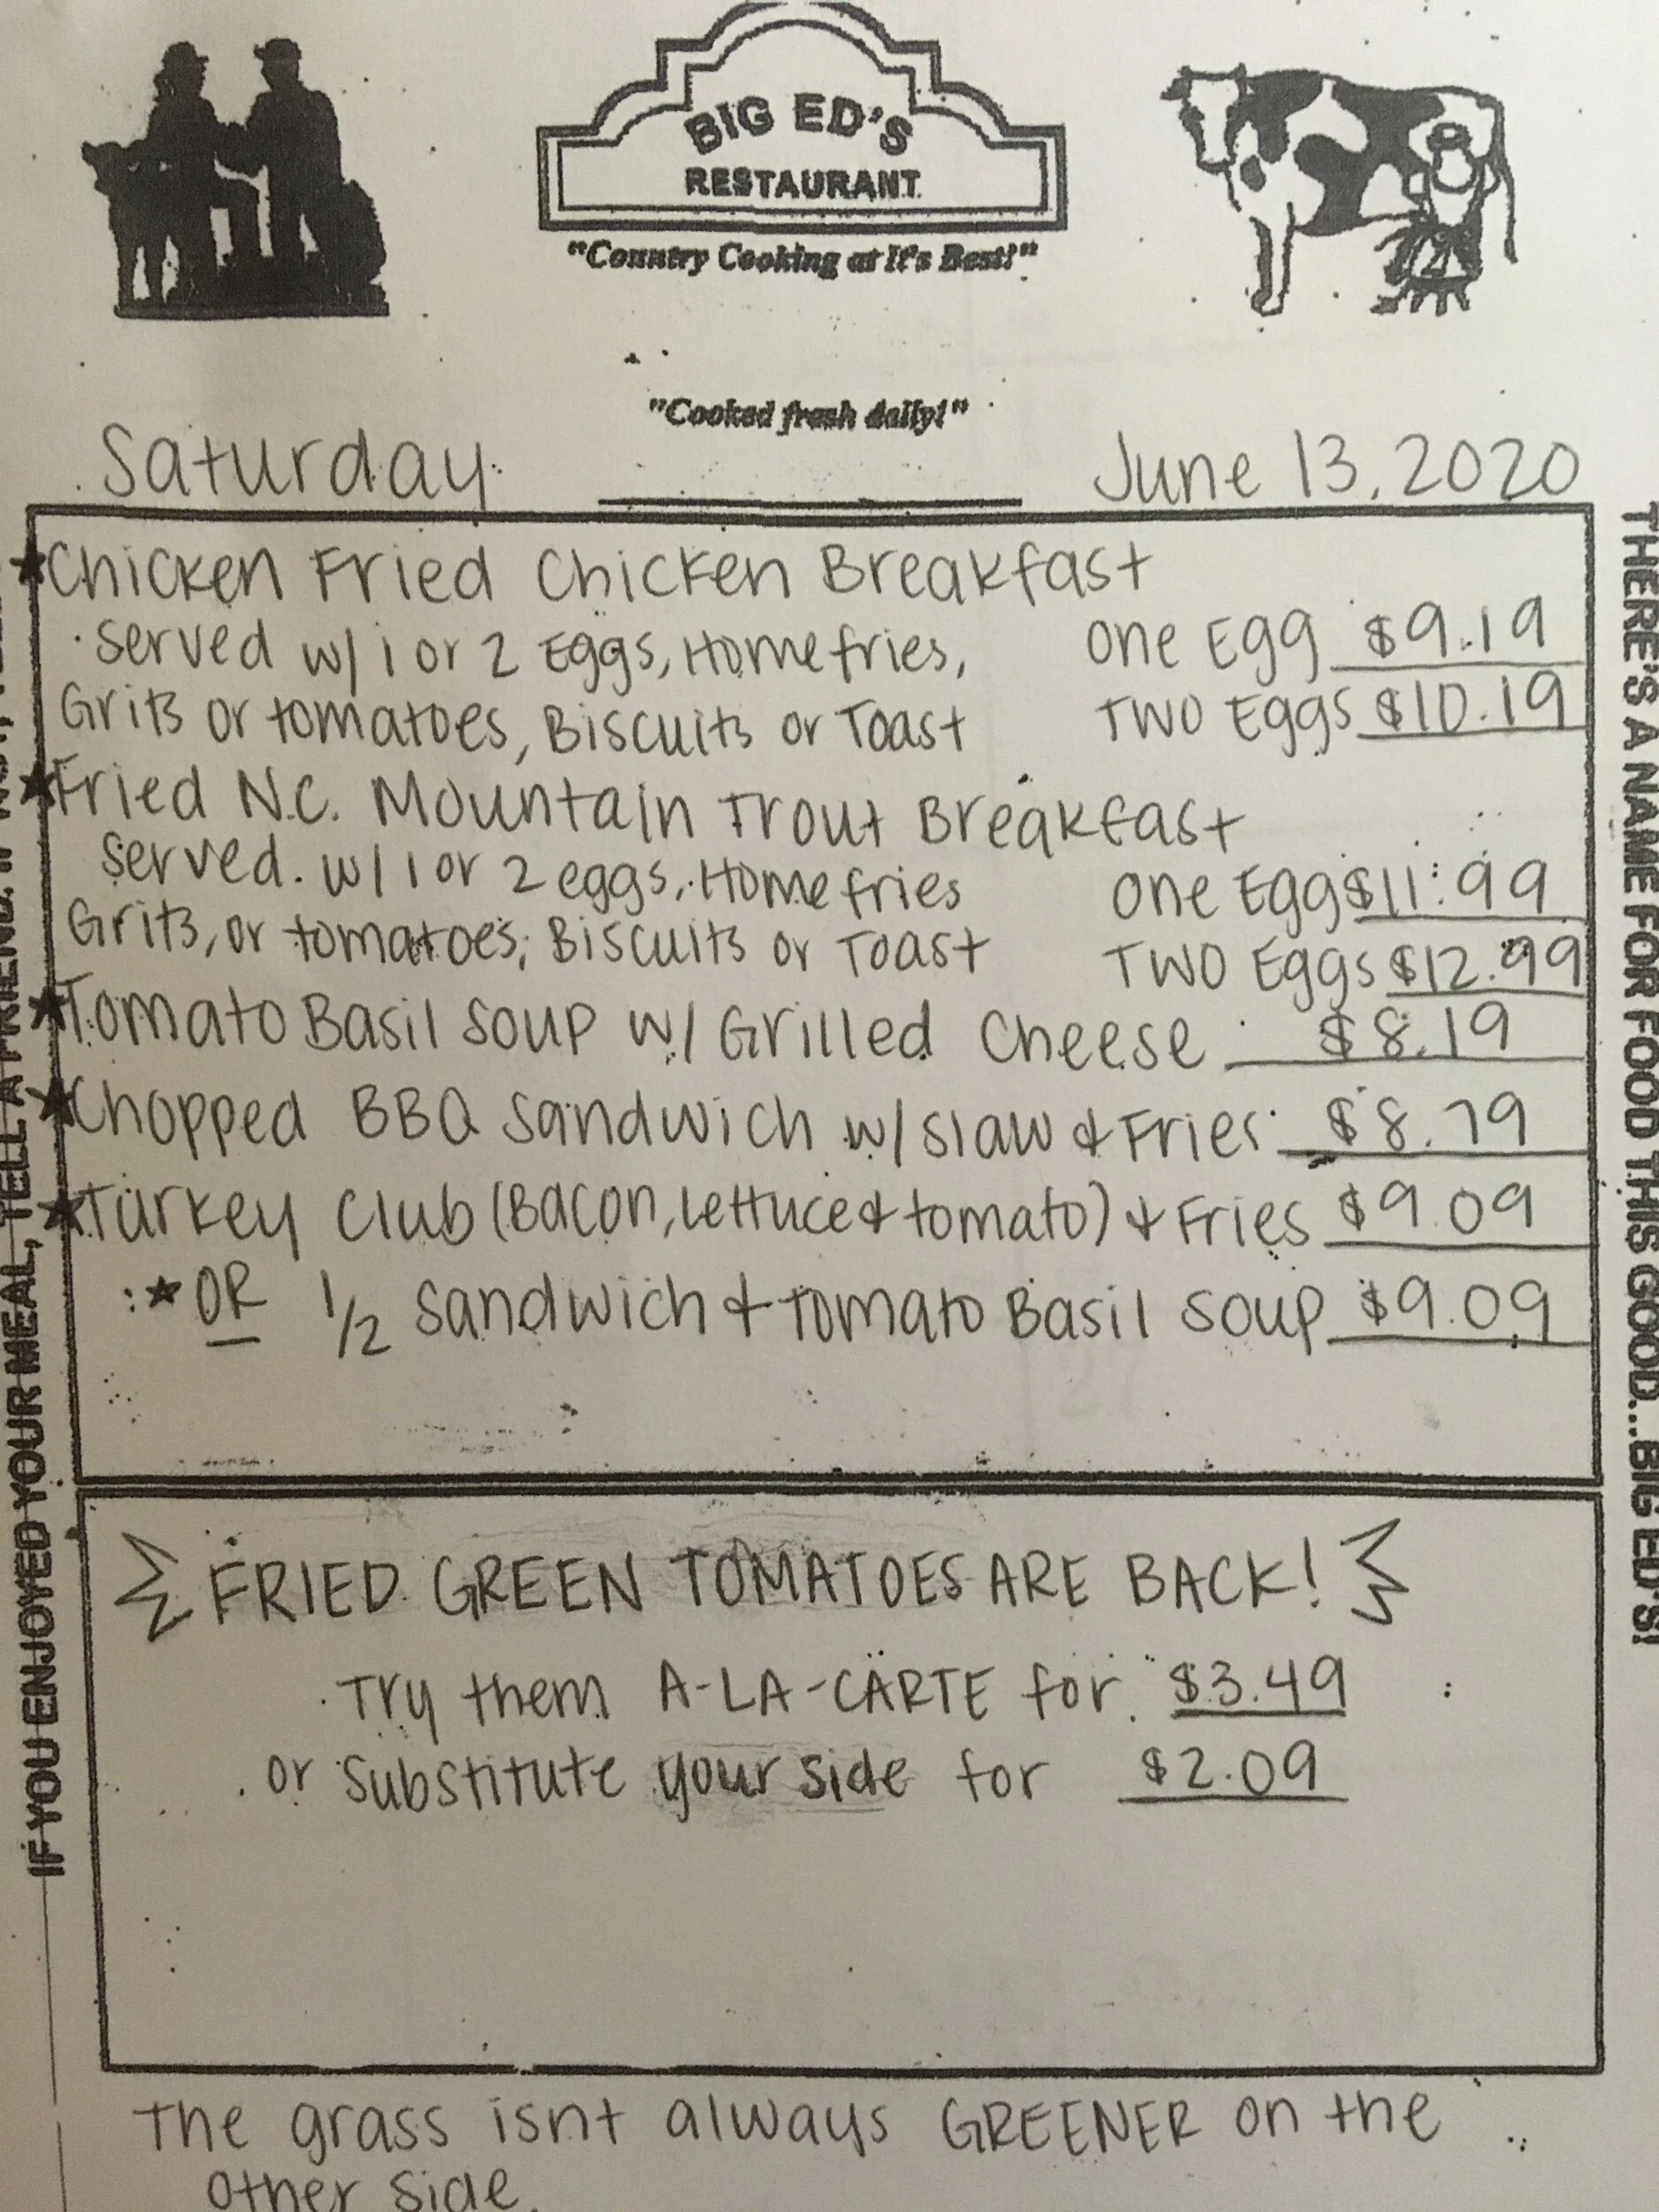 BIG ED'S
RESTAURANT
"Country Cooking at It's Best!"
"Cooked fresh daily!"
Saturday June 13, 2020
★Chicken Fried Chicken Breakfast
served w/ 1 or 2 Eggs, Homefries, One Egg $9.19
Grits or tomatoes, Biscuits or Toast TWO Eggs $10.19
★Fried N.C. Mountain Trout Breakfast
served w/ 1 or 2 eggs, Homefries One Egg $11.99
Grits, or tomatoes, Biscuits or Toast TWO Eggs $12.99
★Tomato Basil Soup w/ Grilled Cheese $8.19
★Chopped BBQ Sandwich w/ slaw & Fries $8.79
★Turkey Club (Bacon, Lettuce & tomato) & Fries $9.09
★OR 1/2 Sandwich & Tomato Basil Soup $9.09
FRIED GREEN TOMATOES ARE BACK!
Try them A-LA-CARTE for $3.49
or Substitute your side for $2.09
The grass isnt always GREENER on the
other side.
IF YOU ENJOYED YOUR MEAL, TELL A FRIEND. IF
THERE'S A NAME FOR FOOD THIS GOOD...BIG ED'S!